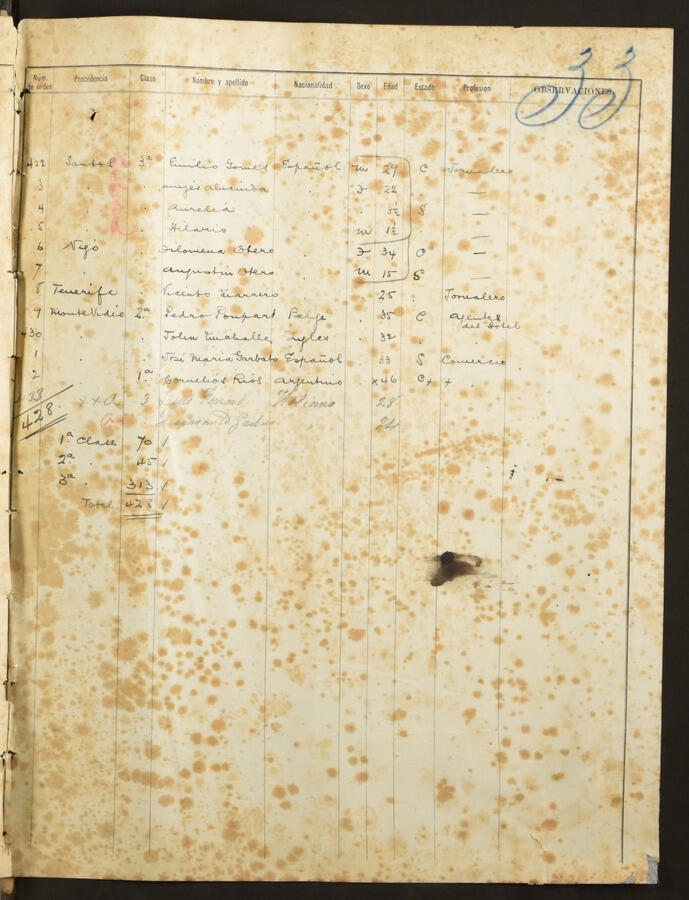 33
Núm. de orden Procedencia Clase Nombre y apellido Nacionalidad Sexo Edad Estado Profesion OBSERVACIONES
422 Santos 3ª Emilio Gomes Español m 29 C Jornalero
3 " . . F 22 —
4 " . Aurelia . 3½ S —
5 . . Hilario . m 1½ —
6 Vigo . Filomena Otero . F 34 C —
7 . . Augustin Otero . m 15 S —
8 Tenerife . Vicento Marrero . . 25 . Jornalero
9 MonteVidio 2ª Pedro Poupart Belge . 35 C Agentes del Hotel
430 . . John Ingles . 32
1 . . José Maria Garbato Español . 33 S Comercio
2 1ª Cornelios Rios Argentino . x 46 C x x .
33 x x a 3 Italiano 28
428. " 24
1ª Clase 70 /
2ª . 45 /
3ª . 313 /
Total. 428 /